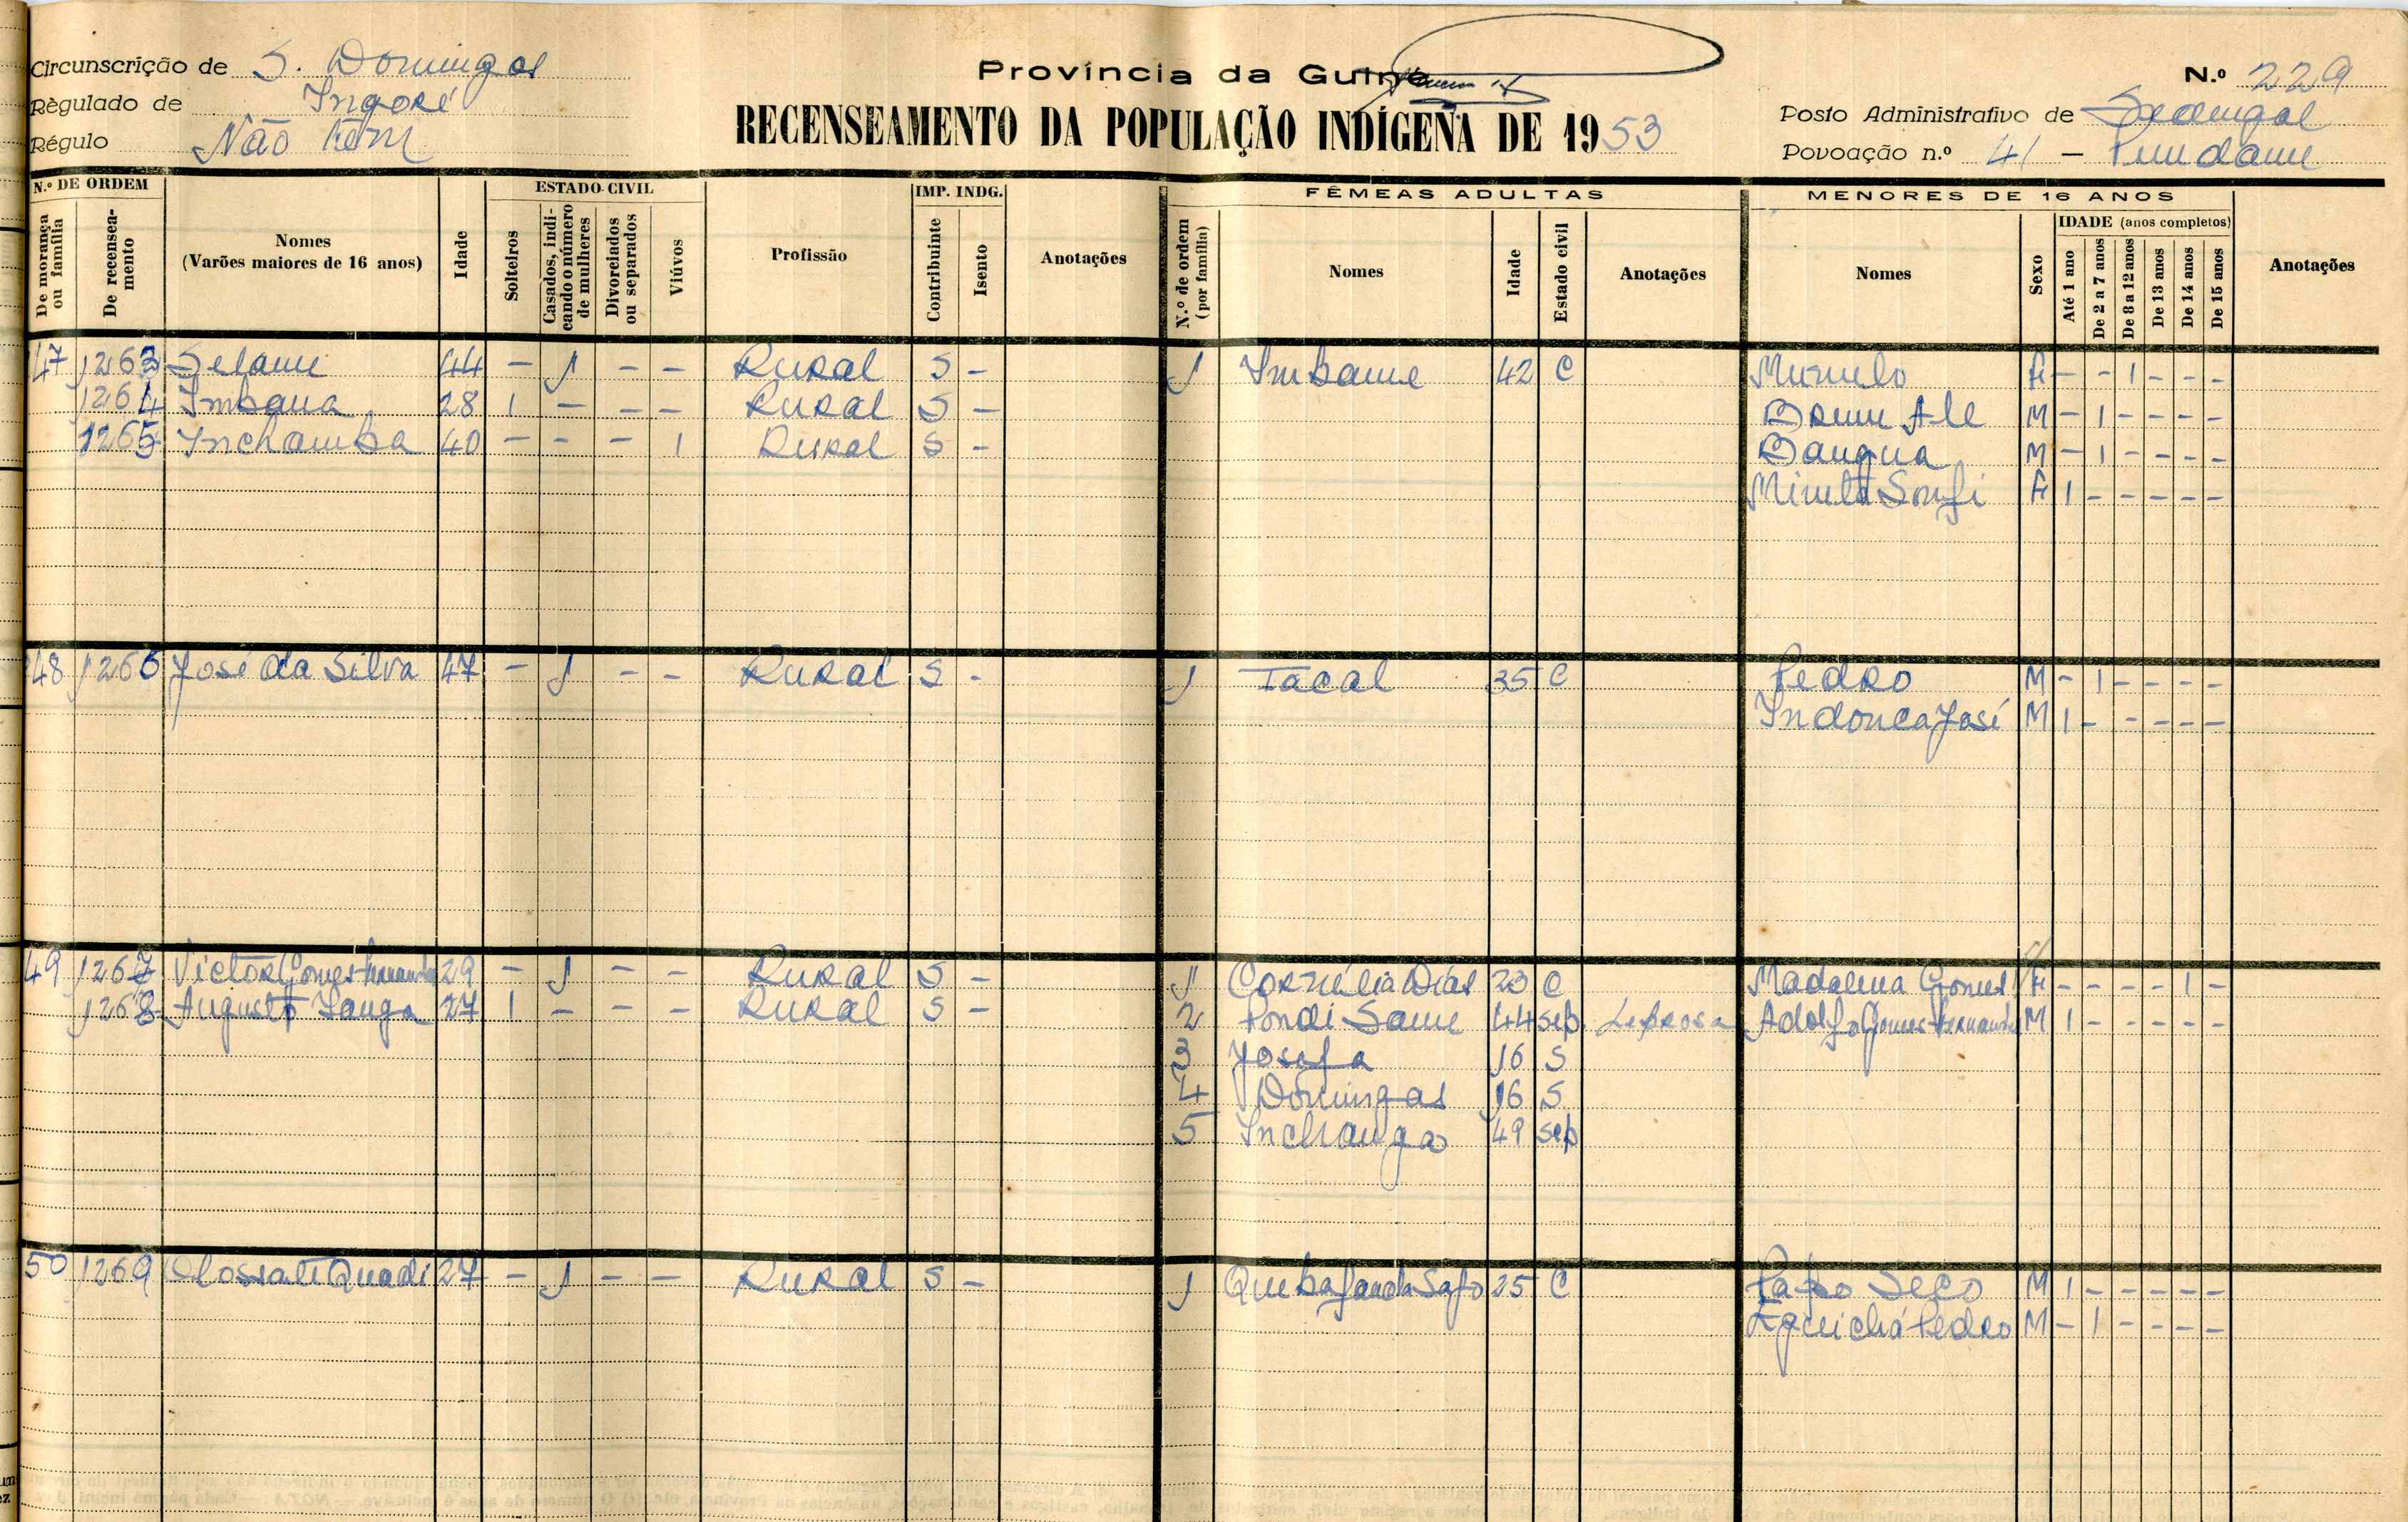 Circunscrição de S. Domingos
Régulado de Ingoré
Régulo Não tem
Província da Guiné
RECENSEAMENTO DA POPULAÇÃO INDÍGENA DE 1953
N.º 229
Posto Administrativo de Sedengal
Povoação n.º 41 -
N.º DE ORDEM
De morança ou família
De recenseamento
Nomes
(Varões maiores de 16 anos)
Idade
ESTADO CIVIL
Solteiros
Casados, indicando o número de mulheres
Divorciados ou separados
Viúvos
Profissão
IMP. INDG.
Contribuinte
Isento
Anotações
FÊMEAS ADULTAS
N.º de ordem (por família)
Nomes
Idade
Estado civil
Anotações
MENORES DE 16 ANOS
Nomes
Sexo
IDADE (anos completos)
Até 1 ano
De 2 a 7 anos
De 8 a 12 anos
De 13 anos
De 14 anos
De 15 anos
Anotações
47 1263 44 - 1 - - Rural S - 1 42 C F - - 1 - - -
1264 Imbana 28 1 - - - Rural S - M - 1 - - - -
1265 Inchamba 40 - - - 1 Rural S - Bangna M - 1 - - - -
F 1 - - - - -
48 1266 José da Silva 47 - 1 - - Rural S - 1 Tacal 35 C Pedro M - 1 - - - -
José M 1 - - - - -
49 1267 Victor Gomes Fernandes 29 - 1 - - Rural S - 1 Cornélia Dias 23 C Madalena Gomes F - - - - 1 -
1268 Augusto Sanga 27 1 - - - Rural S - 2 44 sep. Leprosa Adolfo Gomes Fernandes M 1 - - - - -
3 Josefa 16 S
4 Domingas 16 S
5 Inchanga 49 sep
50 1269 Quadi 27 - 1 - - Rural S - 1 25 C Papo Seco M 1 - - - - -
Pedro M - 1 - - - -